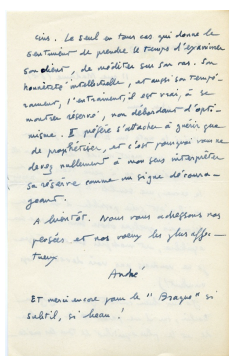 cins. Le seul en tous cas qui donne le
sentiment de prendre le temps d'examiner
son client, de méditer sur son cas. Son
honnêteté intellectuelle, et aussi son tempé-
rament, l'entraînent, il est vrai, à se
montrer réservé, non débordant d'opti-
misme. Il préfère s'attacher à guérir que
de prophétiser, et c'est pourquoi vous ne
devez nullement à mon sens interpréter
sa réserve comme un signe découra-
geant.
A bientôt. Nous vous adressons nos
pensées et nos vœux les plus affec-
tueux
André
Et merci encore pour le "Braque" si
subtil, si beau !